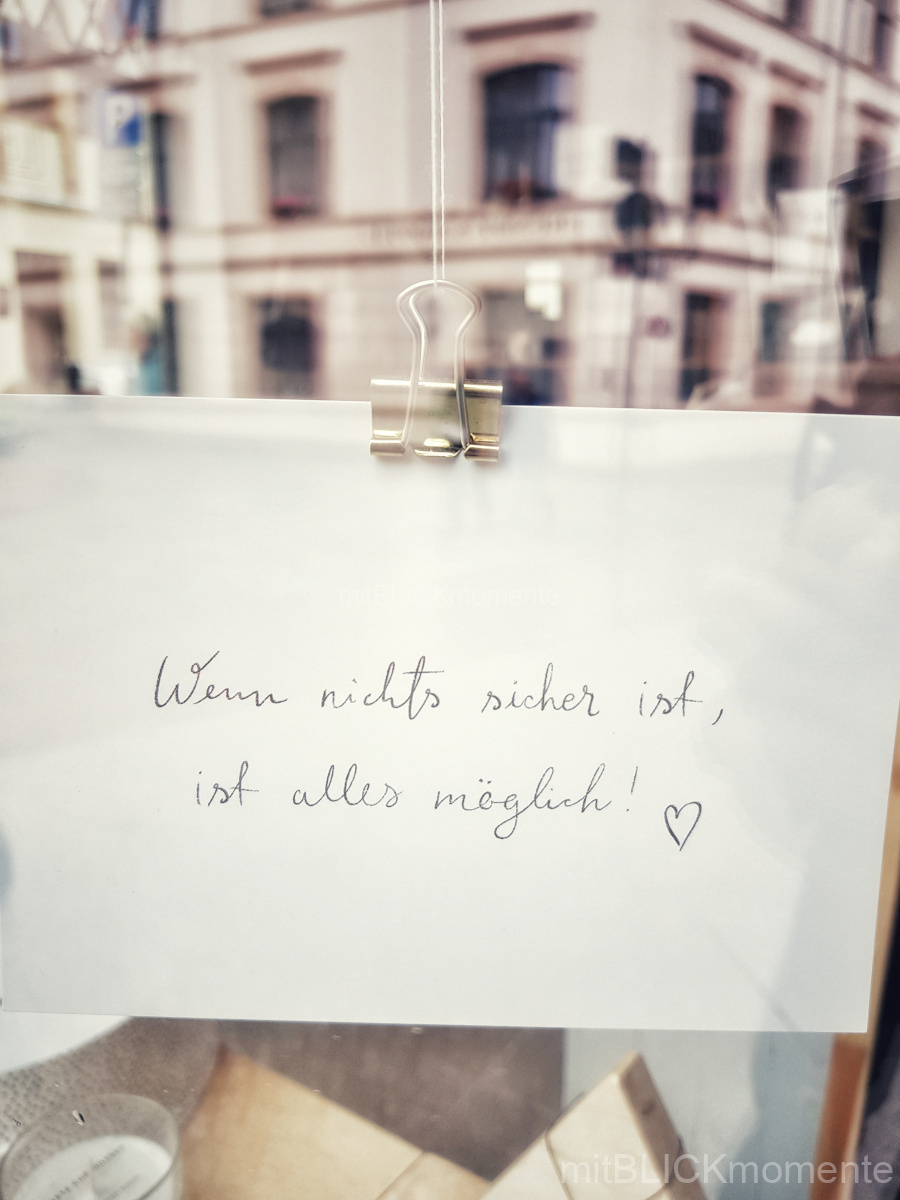 P
mitBLICKmomente
Wenn nichts sicher ist,
ist alles möglich! ♡
mitBLICKmomente